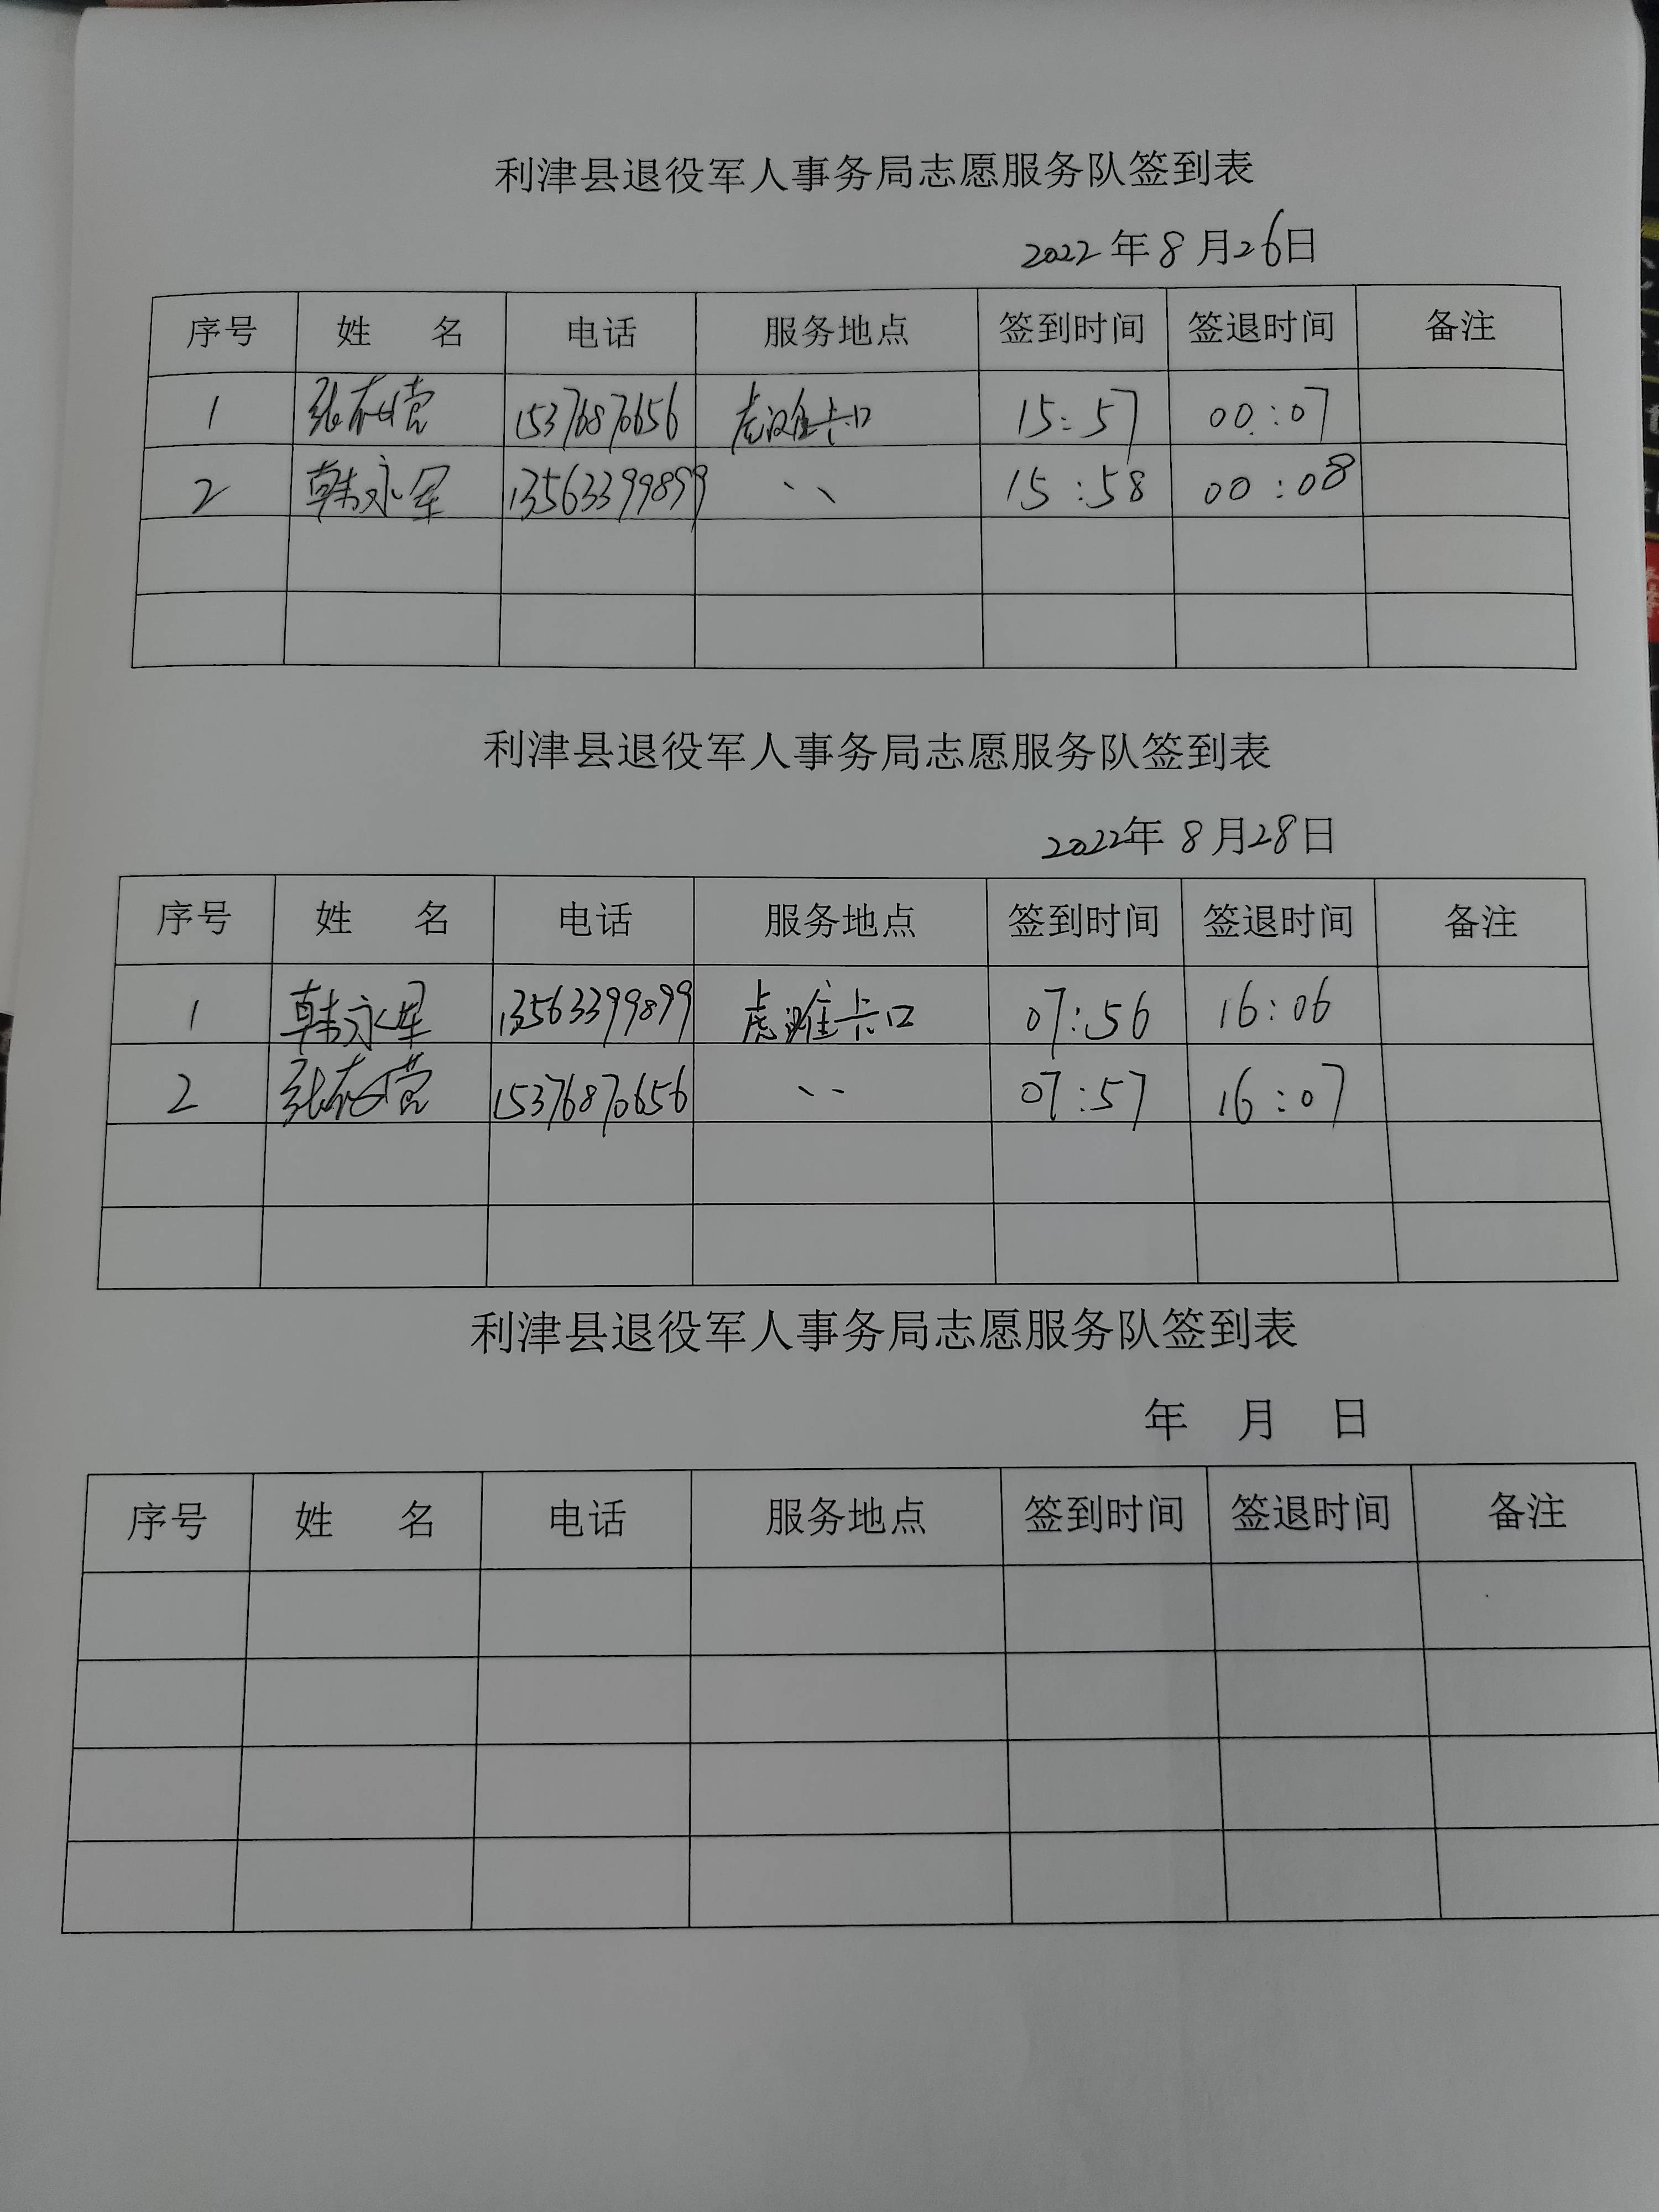 利津县退役军人事务局志愿服务队签到表
2022年8月26日
序号 姓 名 电话 服务地点 签到时间 签退时间 备注
1 张 15376870656 虎滩卡口 15:57 00:07
2 韩永军 13563399899 〃 15:58 00:08
利津县退役军人事务局志愿服务队签到表
2022年8月28日
序号 姓 名 电话 服务地点 签到时间 签退时间 备注
1 韩永军 13563399899 虎滩卡口 07:56 16:06
2 张 15376870656 〃 07:57 16:07
利津县退役军人事务局志愿服务队签到表
年 月 日
序号 姓 名 电话 服务地点 签到时间 签退时间 备注